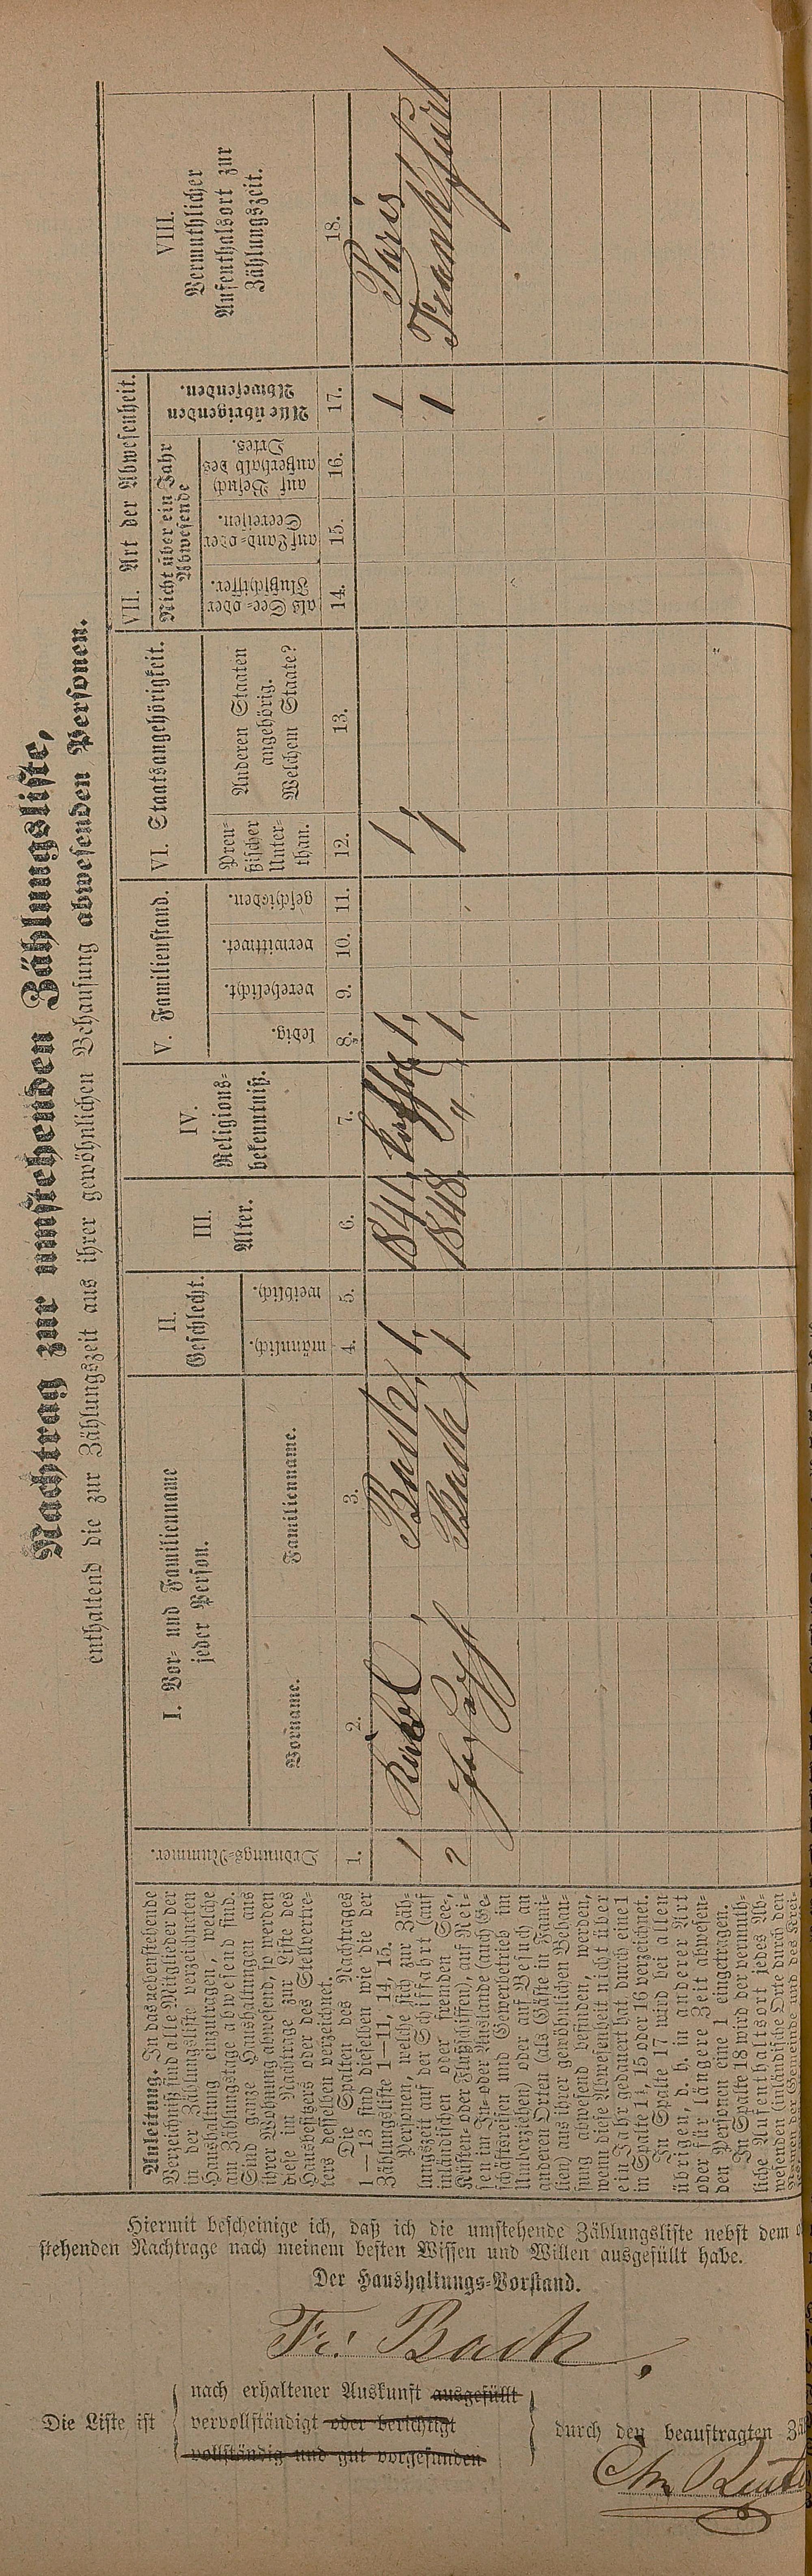 Nachtrag zur umstehenden Zählungsliste,
enthaltend die zur Zählungszeit aus ihrer gewöhnlichen Behausung abwesenden Personen.
Anleitung. In das nebenstehende
Verzeichniß sind alle Mitglieder der
in der Zählungsliste verzeichneten
Haushaltung einzutragen, welche
am Zählungstage abwesend sind.
Sind ganze Haushaltungen aus
ihrer Wohnung abwesend, so werden
diese im Nachtrage zur Liste des
Hausbesitzers oder des Stellvertre-
ters desselben verzeichnet.
Die Spalten des Nachtrages
1—13 sind dieselben wie die der
Zählungsliste 1—11, 14, 15.
Personen, welche sich zur Zäh-
lungszeit auf der Schiffahrt (auf
inländischen oder fremden See-,
Küsten- oder Flußschiffen), auf Rei-
sen im In- oder Auslande (auch Ge-
schäftsreisen und Gewerbetrieb im
Umherziehen) oder auf Besuch an
anderen Orten (als Gäste in Fami-
lien) aus ihrer gewöhnlichen Behau-
sung abwesend befinden, werden,
wenn diese Abwesenheit nicht über
ein Jahr gedauert hat, durch eine 1
in Spalte 14, 15 oder 16 verzeichnet.
In Spalte 17 wird bei allen
übrigen, d. h. in anderer Art
oder für längere Zeit abwesen-
den Personen eine 1 eingetragen.
In Spalte 18 wird der vermuth-
liche Aufenthaltsort jedes Ab-
wesenden (inländische Orte durch den
Namen der Gemeinde und des Krei-
I. Vor- und Familienname
jeder Person.
II.
Geschlecht.
III.
Alter.
IV.
Religions-
bekenntniß.
V. Familienstand.
VI. Staatsangehörigkeit.
VII. Art der Abwesenheit.
Nicht über ein Jahr
Abwesende
VIII.
Vermuthlicher
Aufenthalsort zur
Zählungszeit.
Ordnungs-Nummer.
Vorname.
Familienname.
männlich.
weiblich.
ledig.
verehelicht.
verwittwet.
geschieden.
Preu-
ßischer
Unter-
than.
Anderen Staaten
angehörig.
Welchem Staate?
als See- oder
Flußschiffer.
auf Land- oder
Seereisen.
auf Besuch
außerhalb des
Ortes.
Alle übrigen
Abwesenden.
1. 2. 3. 4. 5. 6. 7. 8. 9. 10. 11. 12. 13. 14. 15. 16. 17. 18.
1 Bach 1 1841 kathol 1 1 1 Paris
2 Joseph Bach 1 1848 " 1 1 1 Frankfurt
Hiermit bescheinige ich, daß ich die umstehende Zählungsliste nebst dem
stehenden Nachtrage nach meinem besten Wissen und Willen ausgefüllt habe.
Der Haushaltungs-Vorstand.
Fr. Bach.
Die Liste ist
nach erhaltener Auskunft ausgefüllt
vervollständigt oder berichtigt
vollständig und gut vorgefunden
durch den beauftragten